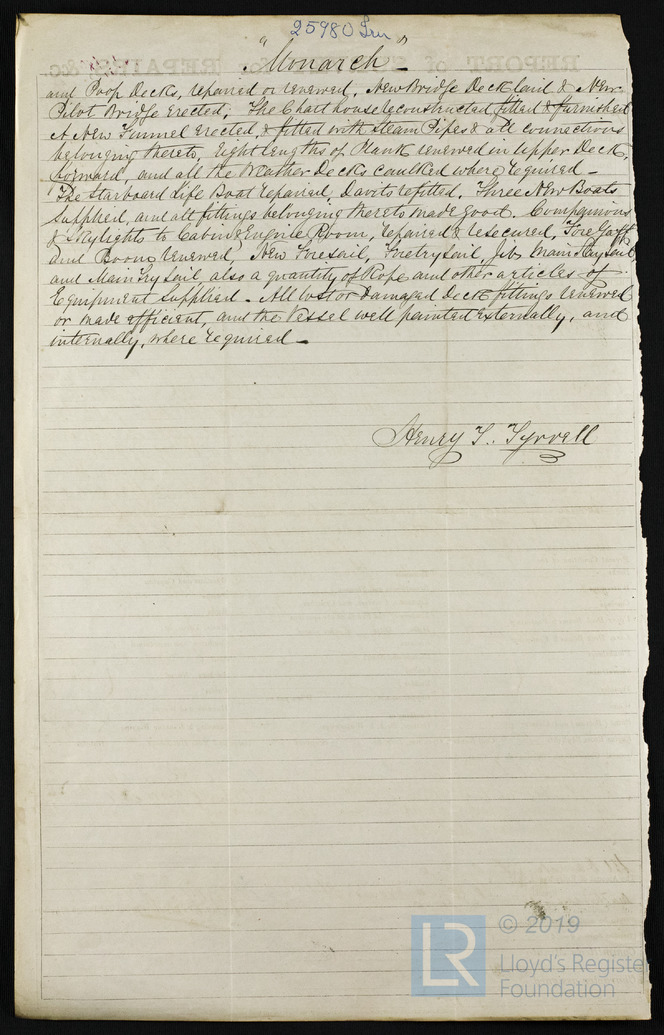 25980 Irn
"Monarch"
and Poop Decks, repaired or renewed. New Bridge Deck laid & New
Pilot Bridge erected, The Charthouse reconstructed, fitted & furnished
A New Funnel erected, & fitted with Steam Pipes & all connections
belonging thereto, Eight lengths of Plank renewed in Upper Deck,
forward, and all the Weather Decks caulked where required –
The Starboard Life Boat repaired, Davits refitted. Three New Boats
supplied, and all fittings belonging thereto made good. Companions
& Skylights to Cabin & Engine Room, repaired & resecured, Fore Gaff
and Boom renewed, New Foresail, Foretrysail, Jib, Main Staysail
and Main Trysail, also a quantity of Rope and other articles of
Equipment supplied – All lost or damaged deck fittings renewed
or made efficient, and the Vessel well painted externally, and
internally, where required –
Henry T. Tyrrell
LR
© 2019
Lloyd's Register
Foundation